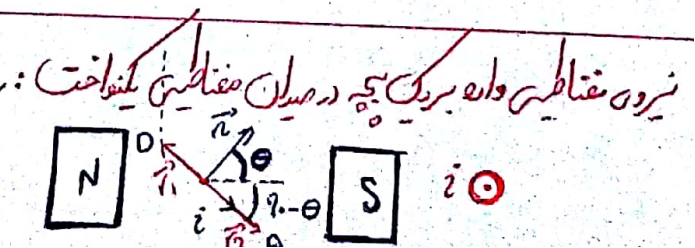 نیروی مغناطیسی وارد بر یک پیچه در میدان مغناطیسی یکنواخت :
N D n θ S i ⊙
r₁ i 90-θ
r₂